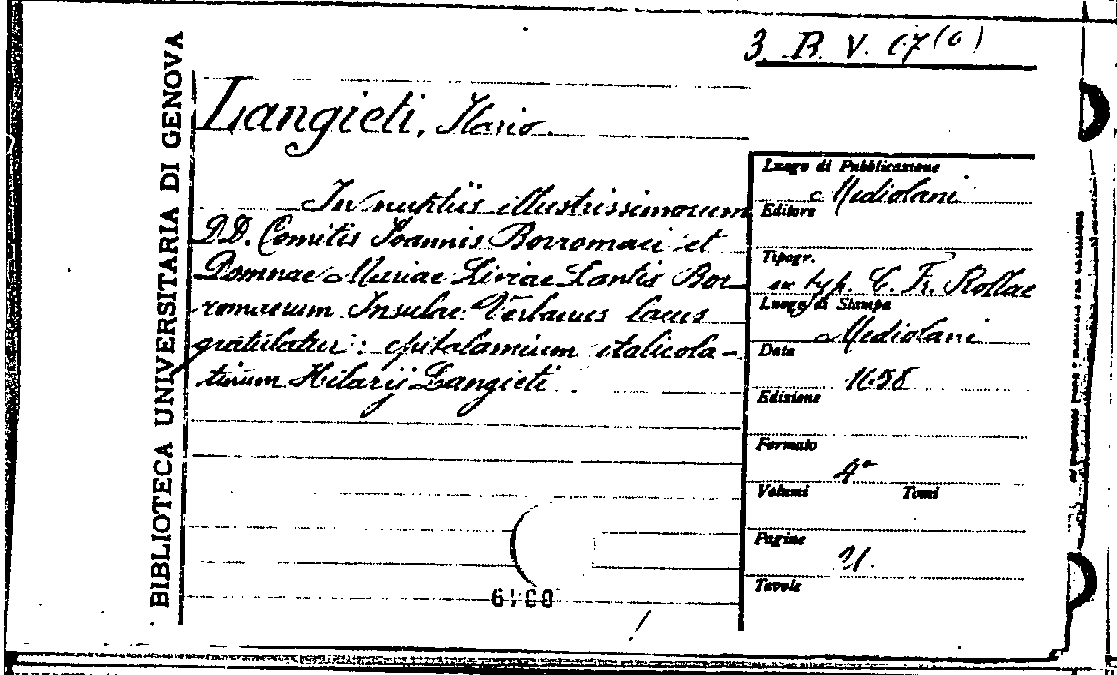 3. B. V. 67(6)
BIBLIOTECA UNIVERSITARIA DI GENOVA
Langieti, Ilario.
In nuptiis illustrissimorum
D.D. Comitis Joannis Borromaei et
Domnae Mariae Liviae Lantis Bor
romaeum Insulae Verbanus lacus
gratulatur: epitalamium italicola-
tinum Hilarij Langieti.
Luogo di Pubblicazione
Mediolani
Editore
Tipogr.
ex typ. C. Fr. Rollae
Luogo di Stampa
Mediolani
Data
1658
Edizione
Formato
4°
Volumi Tomi
Pagine
21.
Tavole